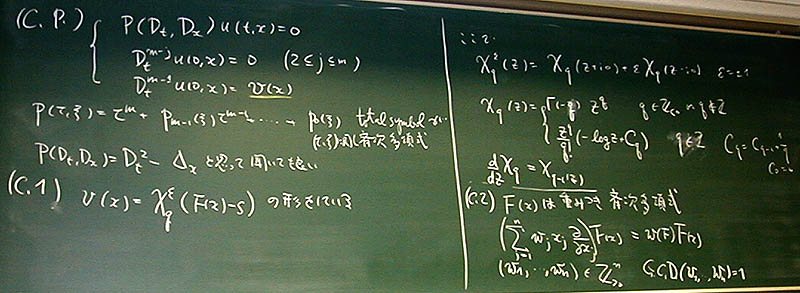 (C. P.) { P(D_t, D_x) u(t,x) = 0
D_t^{m-j} u(0,x) = 0 (2 ≤ j ≤ m)
D_t^{m-1} u(0,x) = v(x)
P(τ,ξ) = τ^m + P_{m-1}(ξ) τ^{m-1} + ... + p_0(ξ) total symbol
(τ,ξ) 斉次多項式
P(D_t, D_x) = D_t^2 - Δ_x と思って聞いても良い
(C.1) v(x) = χ_q^ε (F(x) - s) の形をしている
ここで
χ_q^ε(z) = χ_q(z+i0) + ε χ_q(z-i0) ε = ±1
χ_q(z) = { Γ(-q) z^q q ∈ Z_{<0} or q ∉ Z
z^q/q! (-log z + C_q) q ∈ Z C_q = C_{q-1} + 1/q
C_0 = 0
d/dz χ_q = χ_{q-1}(z)
(C.2) F(x) は 重みつき 斉次多項式
(∑_{j=1}^n w_j x_j ∂/∂x_j) F(x) = w(F) F(x)
(w_1, ..., w_n) ∈ Z_{>0}^n G.C.D(w_1, ..., w_n) = 1